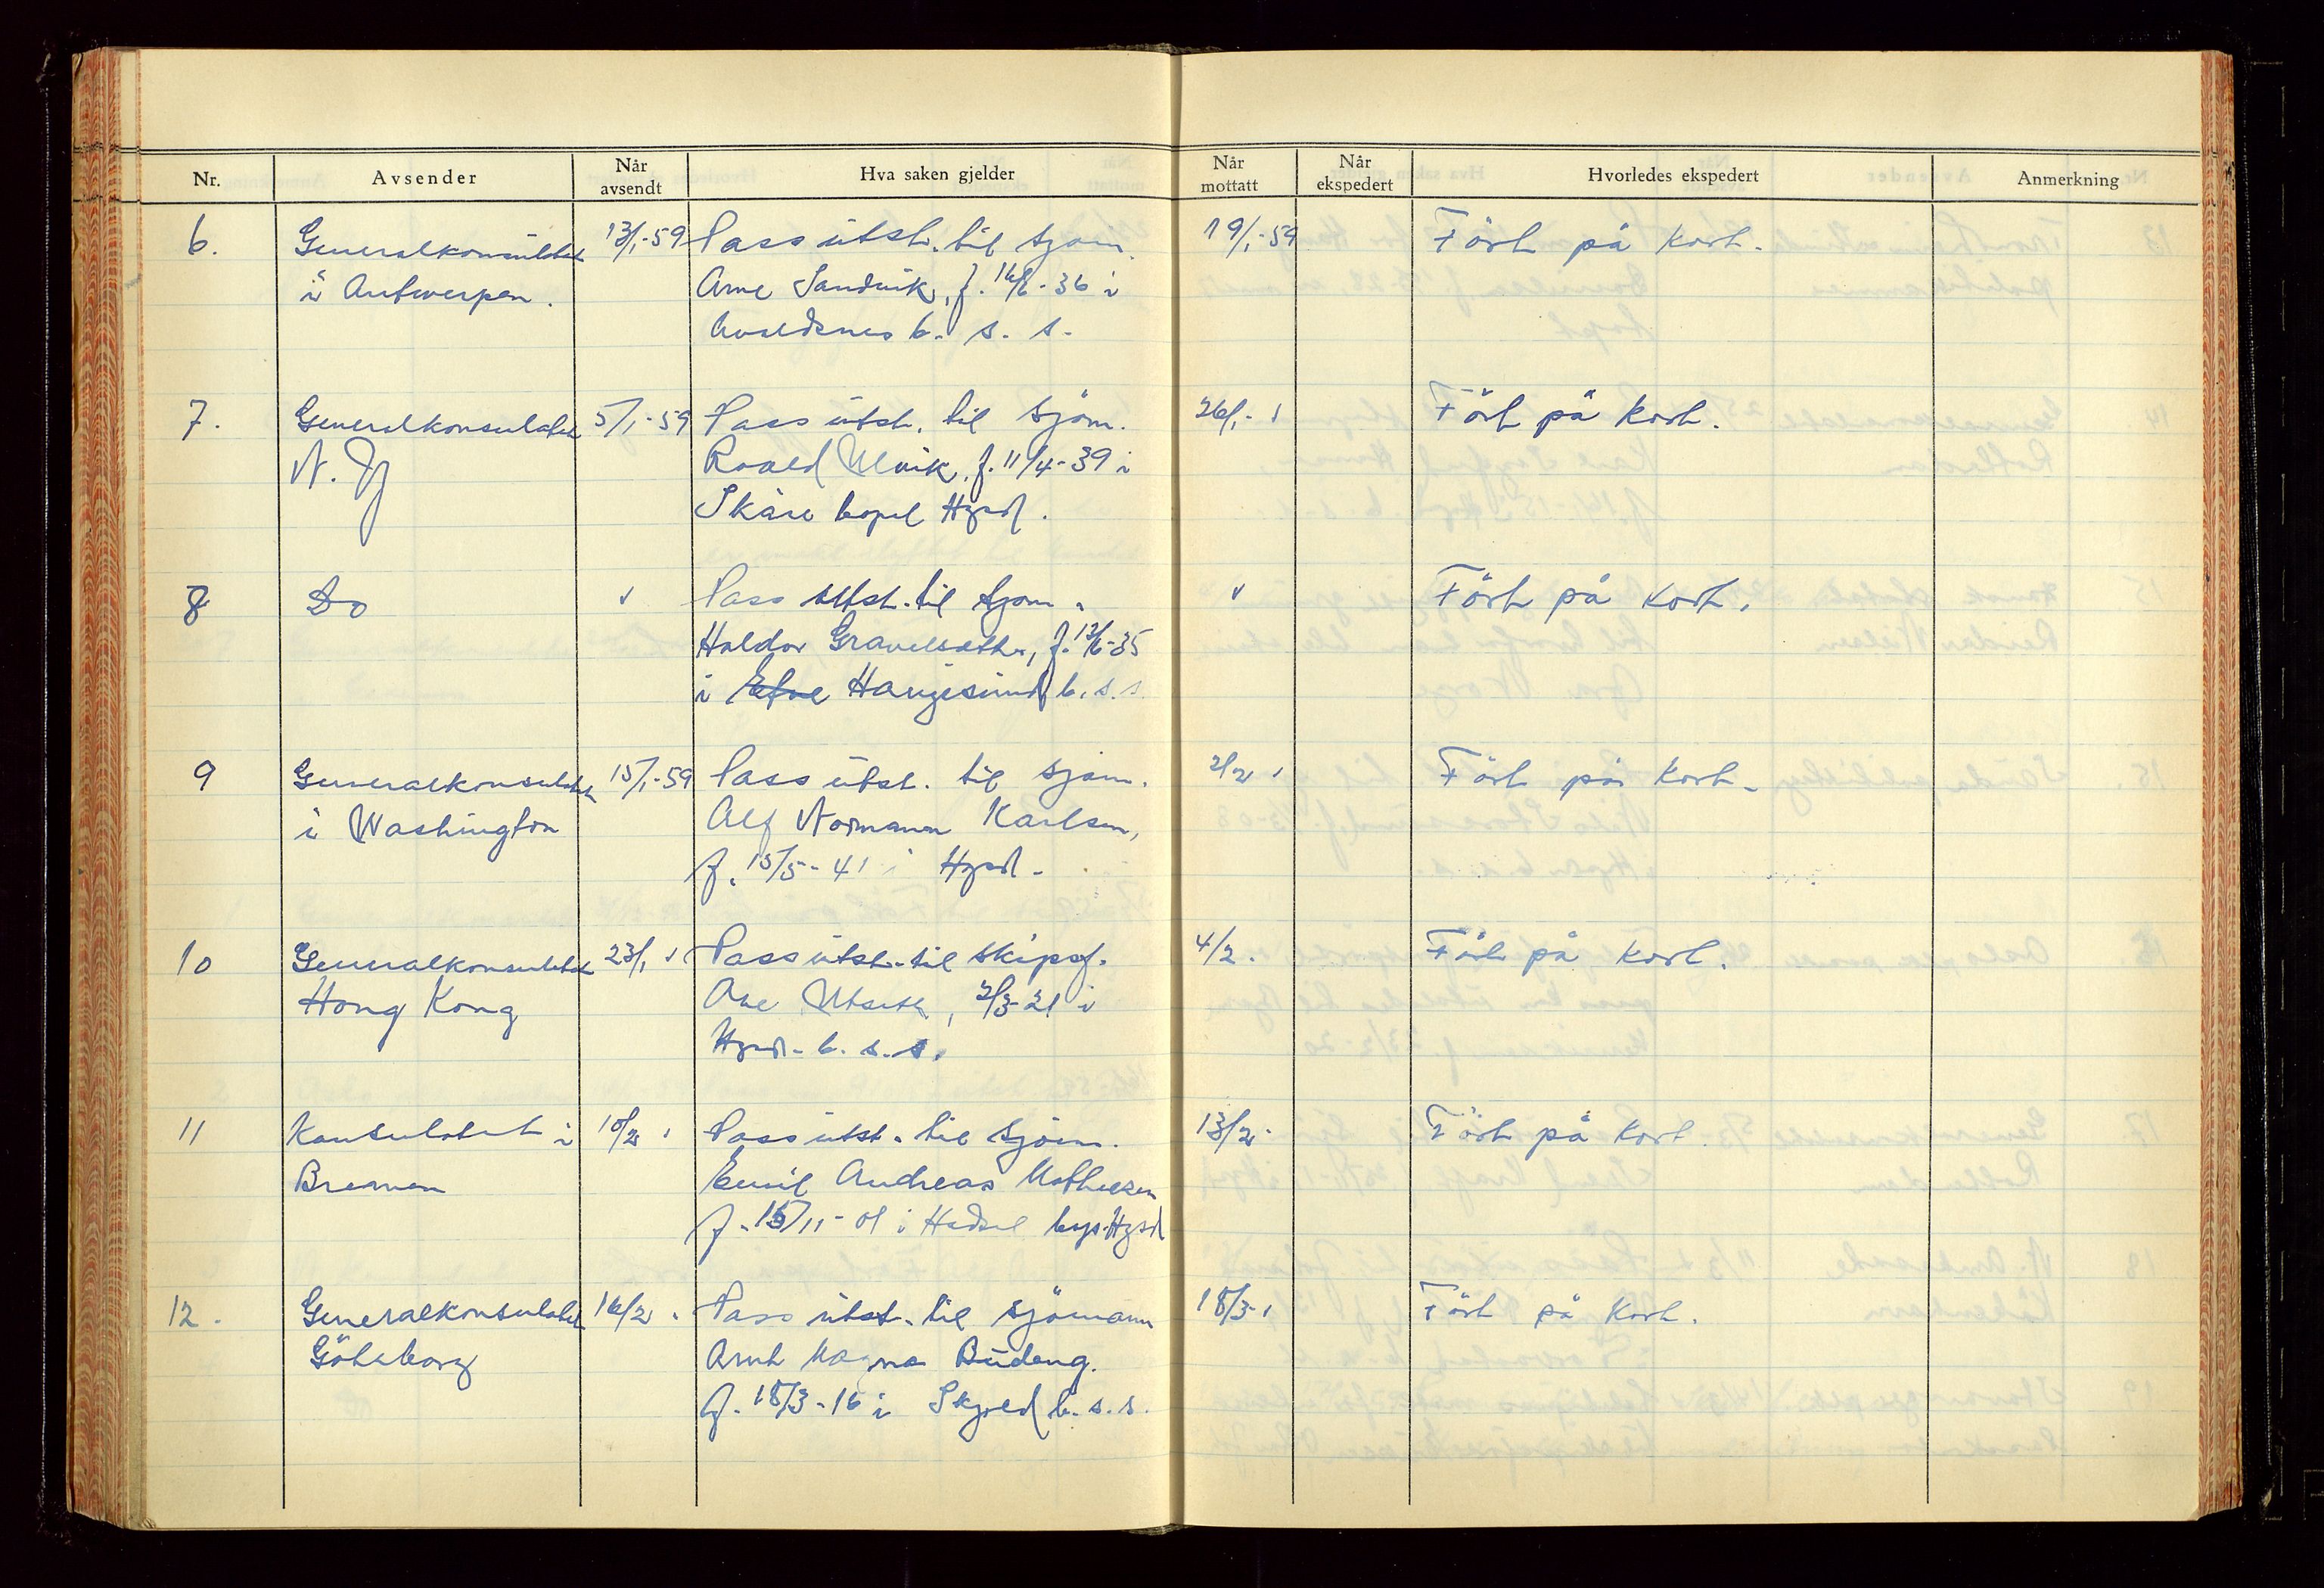 Nr. Avsender Når avsendt Hva saken gjelder Når mottatt Når ekspedert Hvorledes ekspedert Anmerkning
6. Generalkonsulatet 13/1-59 Pass utst. til sjøm. 19/1-59 Ført på kort.
i Antwerpen. Arne Sandvik, f. 16/6-36 i
Avaldsnes b. s. s.
7. Generalkonsulatet 5/1-59 Pass utst. til sjøm. 26/1- Ført på kort.
N.Y. Roald Ulvik, f. 11/4-39 i
Skåre bopel Hgsd.
8 Do Pass utst. til sjøm. Ført på kort.
Haldor Gravelsæther, f. 12/6-35
i Haugesund b. s. s.
9 Generalkonsulatet 15/1-59 Pass utst. til sjøm. 2/2 Ført på kort.
i Washington Alf Normann Karlsen,
f. 15/5-41 i Hgsd.
10 Generalkonsulatet 23/1 Pass utst. til skipsf. 4/2. Ført på kort.
Hong Kong 2/3-21 i
Hgsd. b. s. s.
11 Konsulatet i 10/2 Pass utst. til sjøm. 13/2- Ført på kort.
Bremen Emil Andreas Mathiesen
f. 15/11-01 i Hadsel bop. Hgsd
12. Generalkonsulatet 16/2 Pass utst. til sjømann 18/3- Ført på kort.
Göteborg Arnt Magne
f. 18/3-16 i Skjold b. s. s.